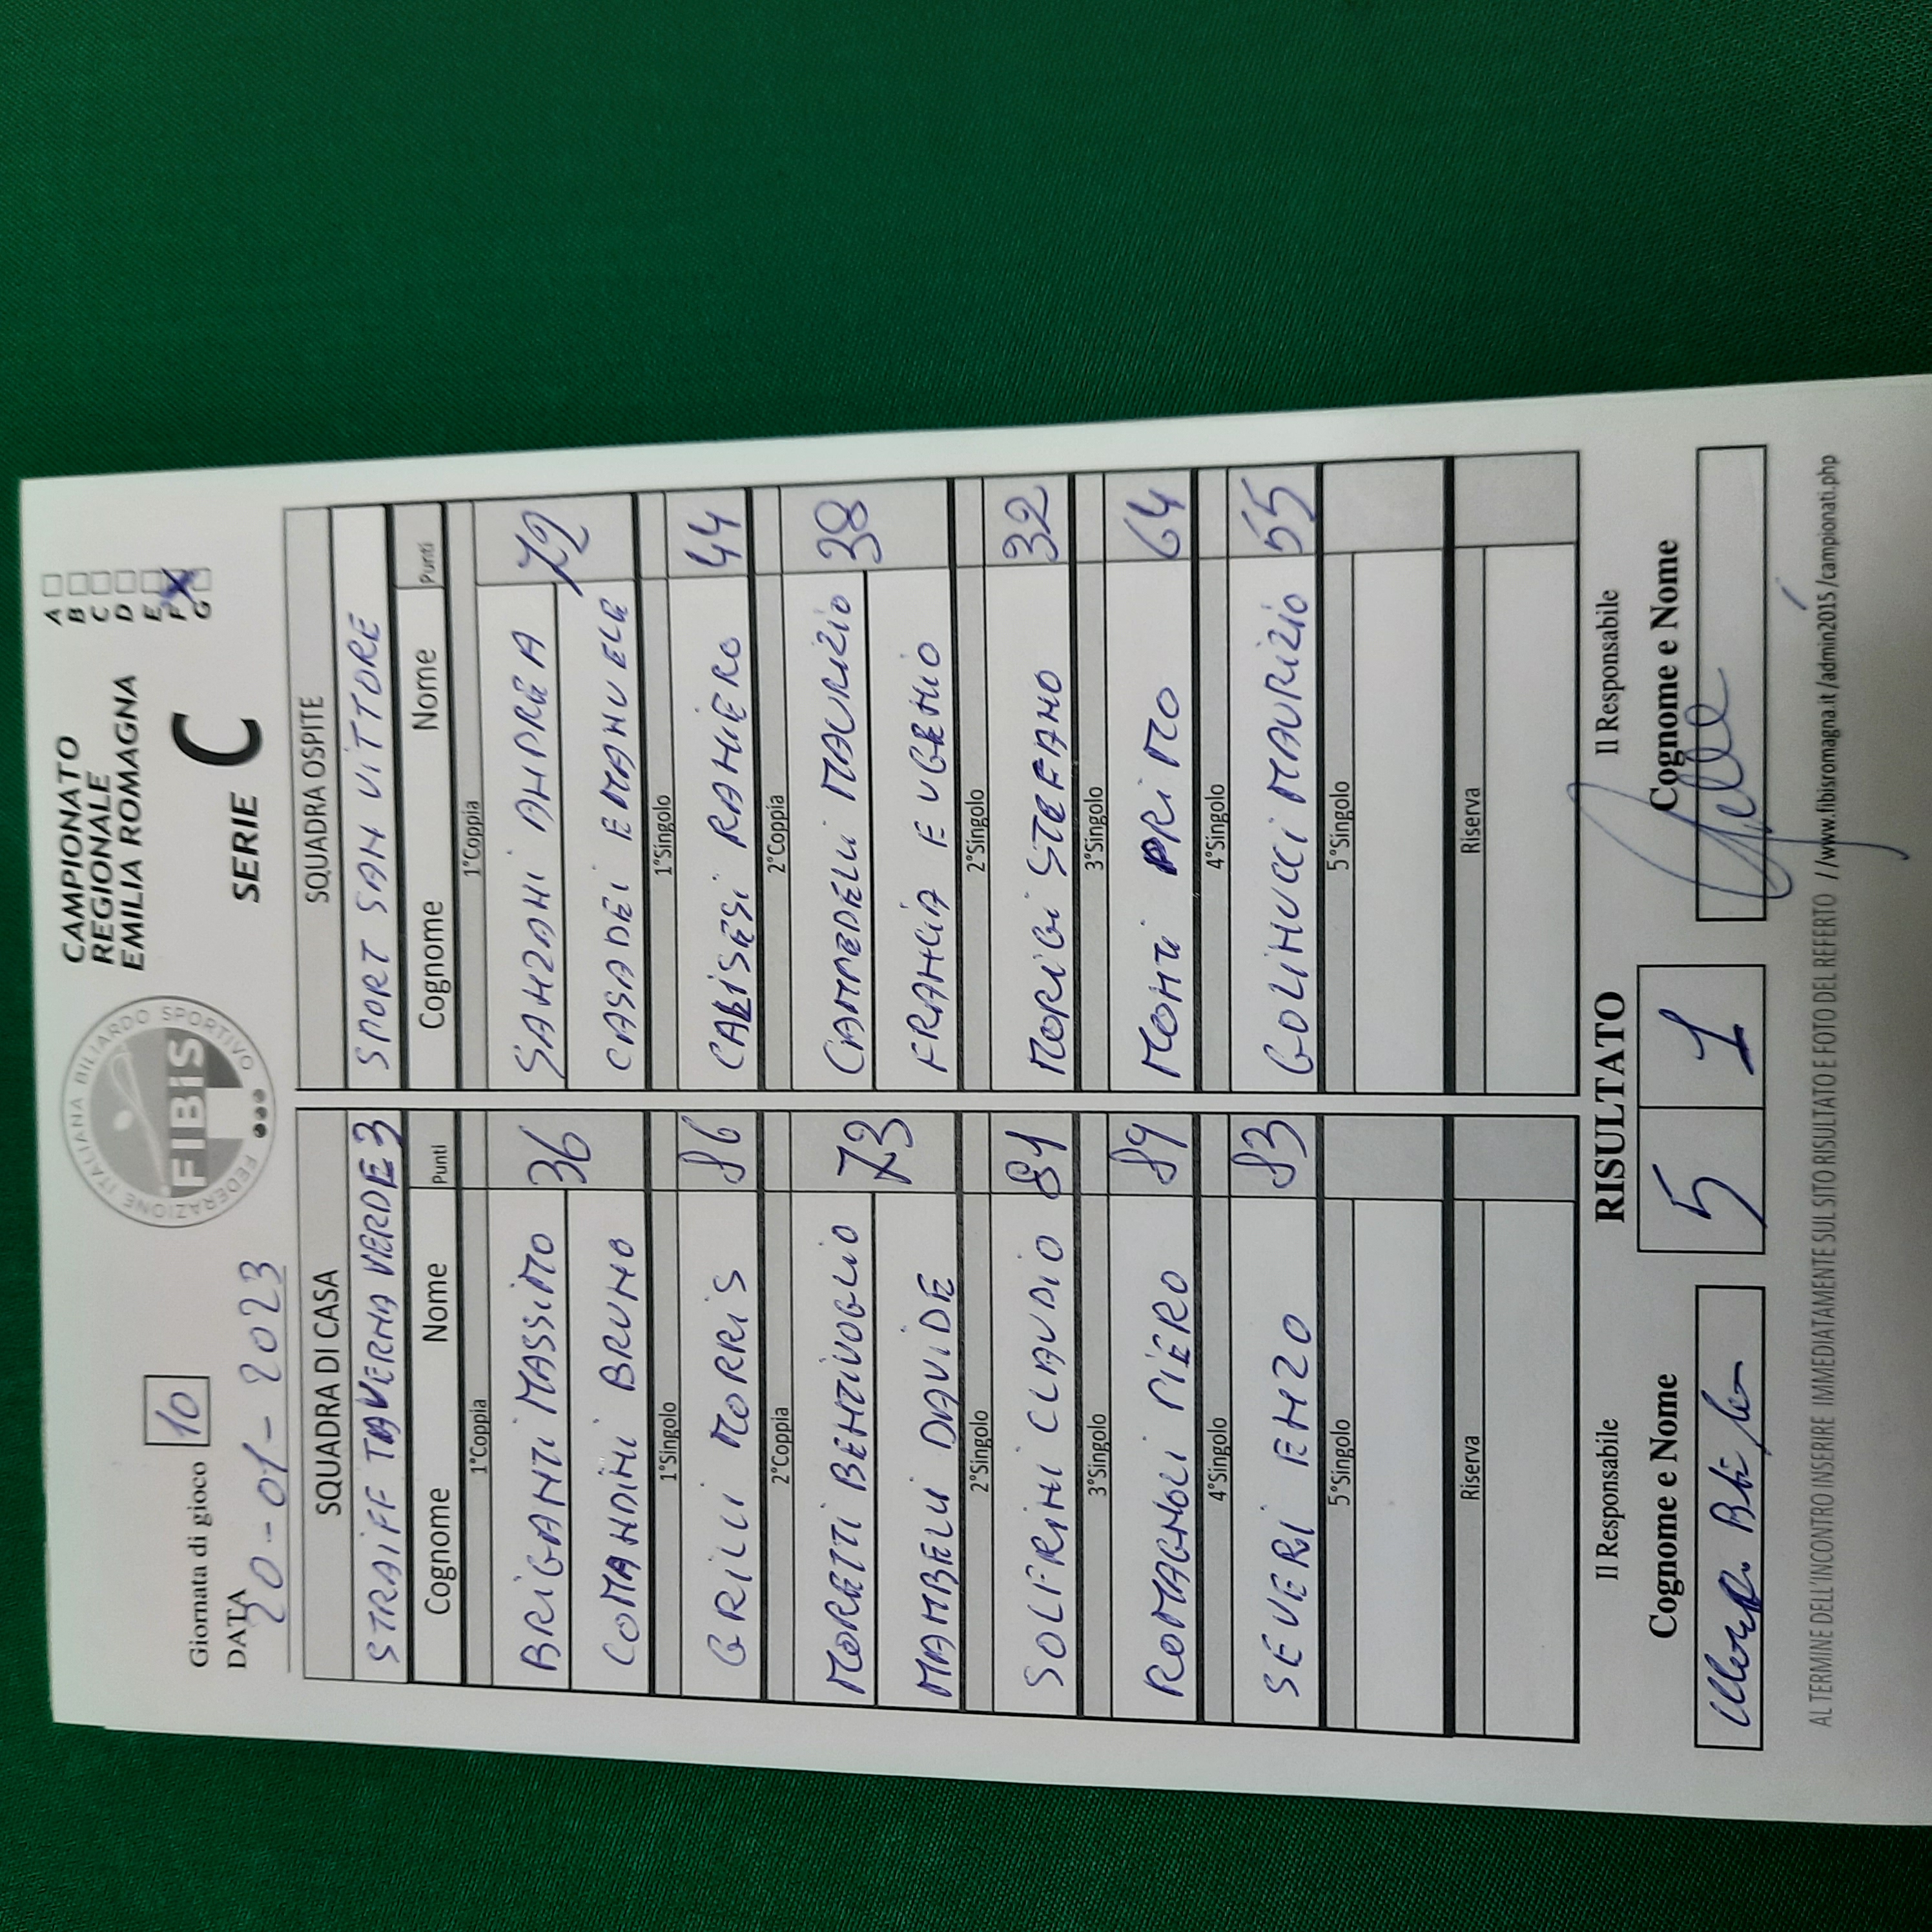 Giornata di gioco 10
DATA 20-01-2023
FEDERAZIONE ITALIANA BILIARDO SPORTIVO
FIBiS
CAMPIONATO
REGIONALE
EMILIA ROMAGNA
SERIE C
A
B
C
D
E
F X
G
SQUADRA DI CASA SQUADRA OSPITE
STRAIFF TAVERNA VERDE 3 SPORT SAN VITTORE
Cognome Nome Punti Cognome Nome Punti
1°Coppia 1°Coppia
BRIGANTI MASSIMO 36 SANZANI ANDREA 72
COMANDINI BRUNO CASADEI EMANUELE
1°Singolo 1°Singolo
GRILLI MORRIS 86 CALISESI RANIERO 44
2°Coppia 2°Coppia
MORETTI BENTIVOGLIO 73 CAMPEDELLI MAURIZIO 38
MAMBELLI DAVIDE FRANCIA EUGENIO
2°Singolo 2°Singolo
SOLFRINI CLAUDIO 81 MORIGI STEFANO 32
3°Singolo 3°Singolo
ROMAGNOLI PIERO 89 MONTI PRIMO 64
4°Singolo 4°Singolo
SEVERI ENZO 83 GOLINUCCI MAURIZIO 55
5°Singolo 5°Singolo
Riserva Riserva
Il Responsabile RISULTATO Il Responsabile
Cognome e Nome 5 1 Cognome e Nome
AL TERMINE DELL'INCONTRO INSERIRE IMMEDIATAMENTE SUL SITO RISULTATO E FOTO DEL REFERTO //www.fibisromagna.it/admin2015/campionati.php